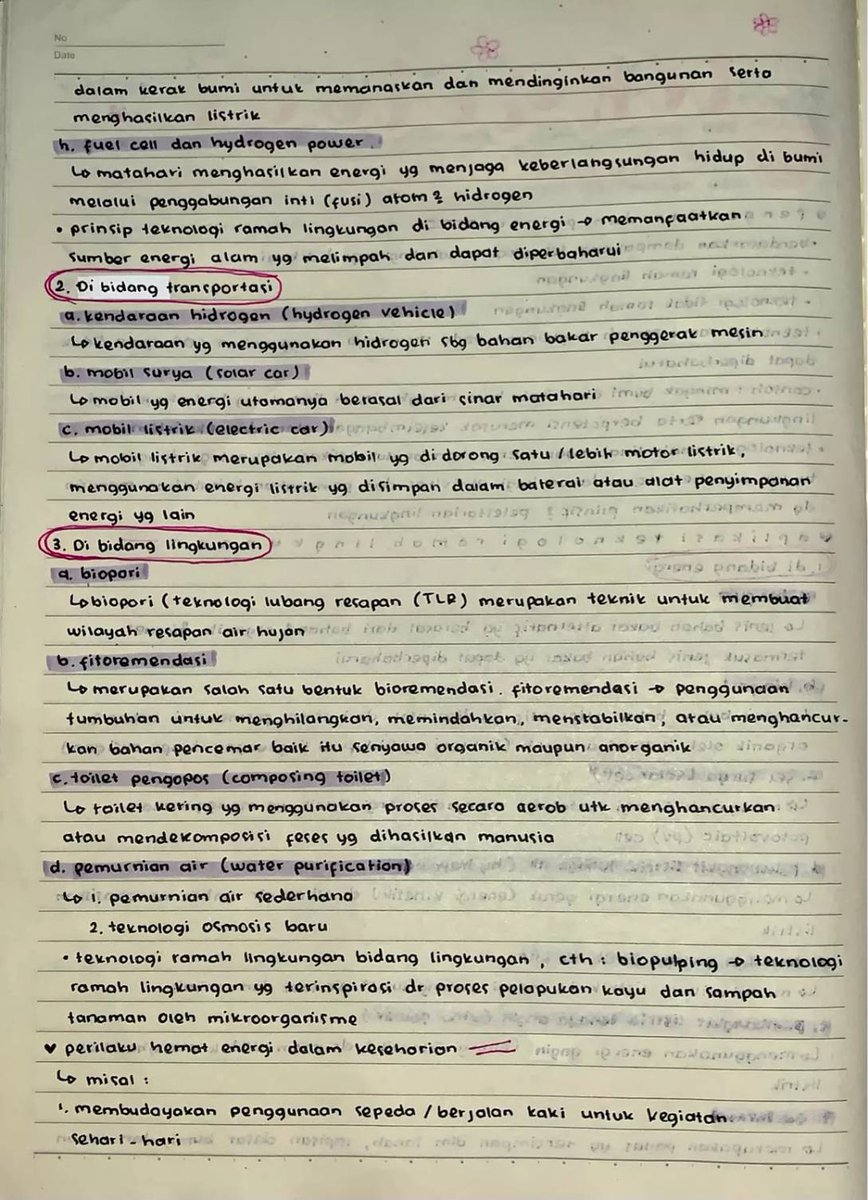 No
Date
dalam kerak bumi untuk memanaskan dan mendinginkan bangunan serta
menghasilkan listrik
h. fuel cell dan hydrogen power.
↳ matahari menghasilkan energi yg menjaga keberlangsungan hidup di bumi
melalui penggabungan inti (fusi) atom² hidrogen
• prinsip teknologi ramah lingkungan di bidang energi → memanfaatkan
sumber energi alam yg melimpah dan dapat diperbaharui
2. Di bidang transportasi
a. kendaraan hidrogen (hydrogen vehicle)
↳ kendaraan yg menggunakan hidrogen sbg bahan bakar penggerak mesin
b. mobil surya (solar car)
↳ mobil yg energi utamanya berasal dari sinar matahari
c. mobil listrik (electric car)
↳ mobil listrik merupakan mobil yg di dorong satu / lebih motor listrik,
menggunakan energi listrik yg disimpan dalam baterai atau alat penyimpanan
energi yg lain
3. Di bidang lingkungan
a. biopori
↳ biopori (teknologi lubang resapan (TLR) merupakan teknik untuk membuat
wilayah resapan air hujan
b. fitoremendasi
↳ merupakan salah satu bentuk bioremendasi. fitoremendasi → penggunaan
tumbuhan untuk menghilangkan, memindahkan, menstabilkan, atau menghancur-
kan bahan pencemar baik itu senyawa organik maupun anorganik
c. toilet pengopos (composing toilet)
↳ toilet kering yg menggunakan proses secara aerob utk menghancurkan
atau mendekomposisi feses yg dihasilkan manusia
d. pemurnian air (water purification)
↳ 1. pemurnian air sederhana
2. teknologi osmosis baru
• teknologi ramah lingkungan bidang lingkungan, cth : biopulping → teknologi
ramah lingkungan yg terinspirasi dr proses pelapukan kayu dan sampah
tanaman oleh mikroorganisme
♥ perilaku hemat energi dalam keseharian
↳ misal :
1. membudayakan penggunaan sepeda / berjalan kaki untuk kegiatan
sehari-hari